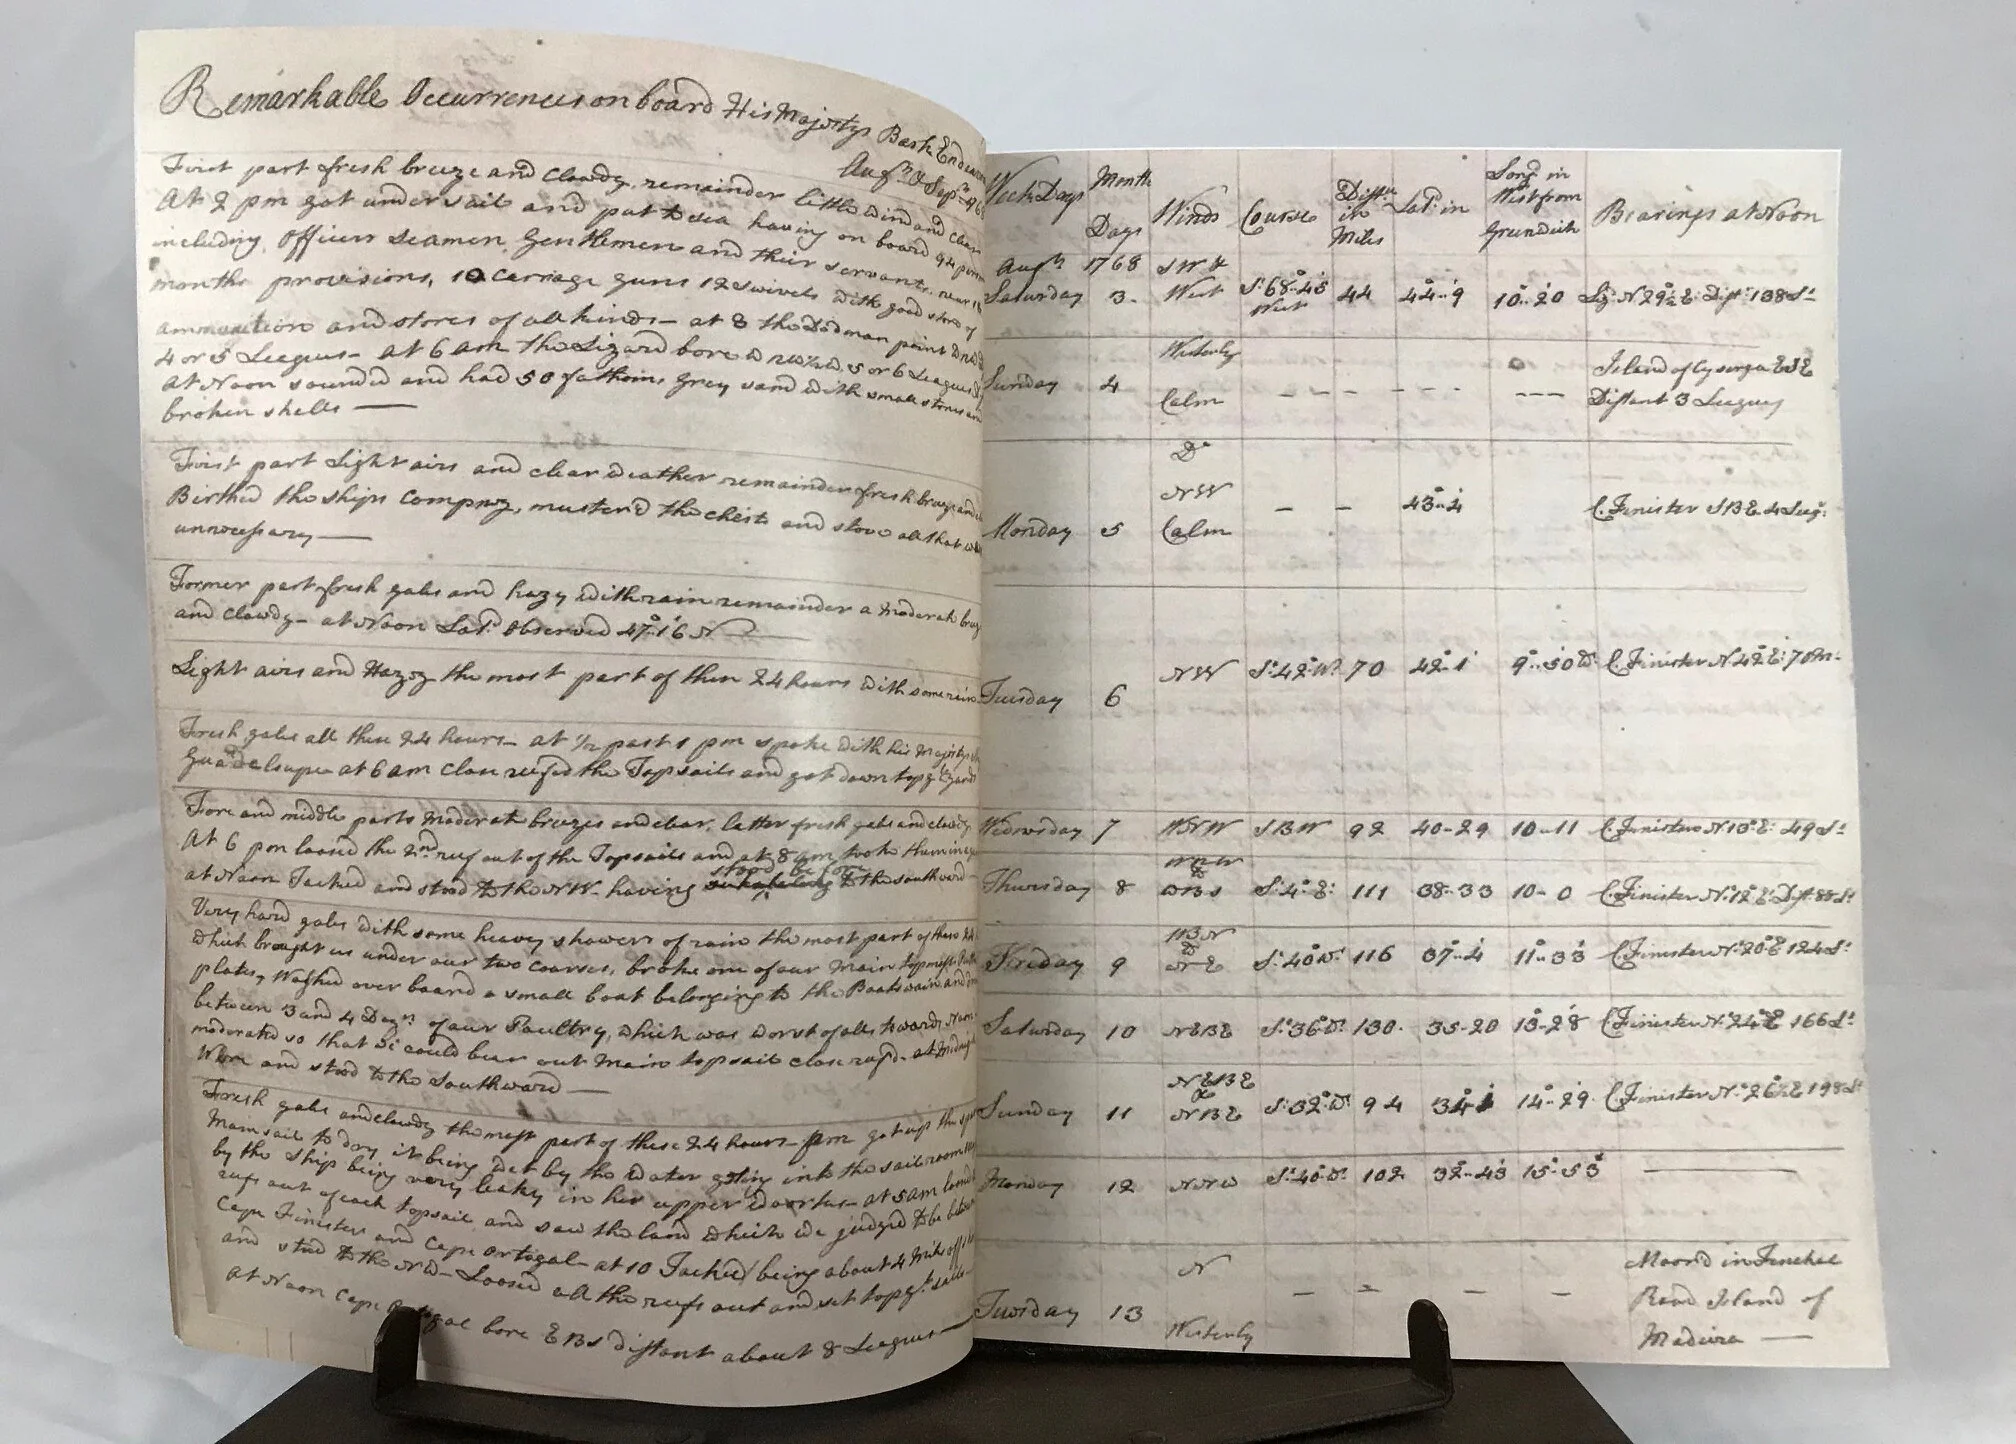 Remarkable Occurrences on board His Majestys Bark Endeavour
Augst & Sepr 1768
First part fresh breeze and Clowdy, remainder little wind and Clear
At 2 pm got under sail and put to sea having on board 94 persons
including Officers Seamen Gentlemen and their servants, near 18
months provisions, 10 Carriage guns 12 Swivels with good store of
ammunition and stores of all kinds - at 8 the Dodman point
4 or 5 Leagues - at 6 am the Lizard bore 5 or 6 Leagues
At Noon sounded and had 50 fathoms Grey sand with small stones and
broken shells —
First part Light airs and clear weather remainder fresh breeze and
Birthed the ships Company, muster'd the chest and stove all that was
unnecessary —
Former part fresh gales and hazy with rain remainder a moderate breeze
and Clowdy - at Noon Latd Observed 47°..16' N —
Light airs and Hazey the most part of these 24 hours with some rain
Fresh gales all these 24 hours - at ½ past 1 pm spoke with his Majestys
Guadeloupe at 6 am Close reefed the Topsails and got down topgt yards
Fore and middle parts Moderate breezes and clear, latter fresh gales and clowdy
At 6 pm loosed the 2nd reef out of the Topsails and at 8 am took them in
stood before
at Noon Tacked and stood to the NW. having to the southward
Very hard gales with some heavy showers of rain the most part of these 24
which brought us under our two courses, broke one of our Main topmast
plates, Washed over board a small boat belonging to the Boatswain and
between 3 and 4 Dozn of our Poultry, which was worst of all towards Noon
moderated so that we could bear our Main topsail close reef'd - at Midnight
Wore and stood to the Southward —
Fresh gales and clowdy the most part of these 24 hours - pm got up the
Mainsail to dry it being wet by the water getting into the sail room
by the Ship being very leaky in her upper works - at 5 am loosed
reef out of each topsail and saw the land which we judged to be between
Cape Finister and Cape Ortegal - at 10 Tacked being about 4 Mile off
and stood to the NW - Loosed all the reefs out and set topgt sails -
At Noon Cape Ortegal bore EBS distant about 8 Leagues —
Week Days Month Days Winds Course Distce in Miles Latd in Longd in West from Greenwich Bearings at Noon
Augst 1768 SW &
Saturday 3 West S. 68°..45' West 44 44°..9' 10°..20' Lizd N 29½ E: Distt 138 Ls
Sunday 4 Westerly Calm - - - - - - - - - Island of Cysarga ESE Distant 3 Leagues
Monday 5 Do NW Calm - - 43°..4' C. Finister SBE. 4 Leags
Tuesday 6 NW S. 42° Wt 70 42°..1' 9°..50' W. C. Finister N. 42° E. 70 M.
Wednesday 7 WNW SBW 92 40-29 10-11 C. Finister N. 13° E. 49 Ls
Thursday 8 WNW & WBS S. 4° E. 111 38..33 10- 0 C. Finister N. 12° E. Distt 88 Ls
Friday 9 WBN to NE S. 40° W. 116 37°..4' 11°..33' C. Finister N. 20° E 124 Ls
Saturday 10 NEBE S. 36° W. 130. 35-20 13°-28' C. Finister N. 24° E 166 Ls
Sunday 11 NEBE & NBE S. 32° W. 94 34° 1' 14°-29' C. Finister N. 26½ E 198 Ls
Monday 12 NNW S. 40° W. 102 32°..43' 15°-53' —
Tuesday 13 N Westerly - - - - Moor'd in Funchal Road Island of Madeira —